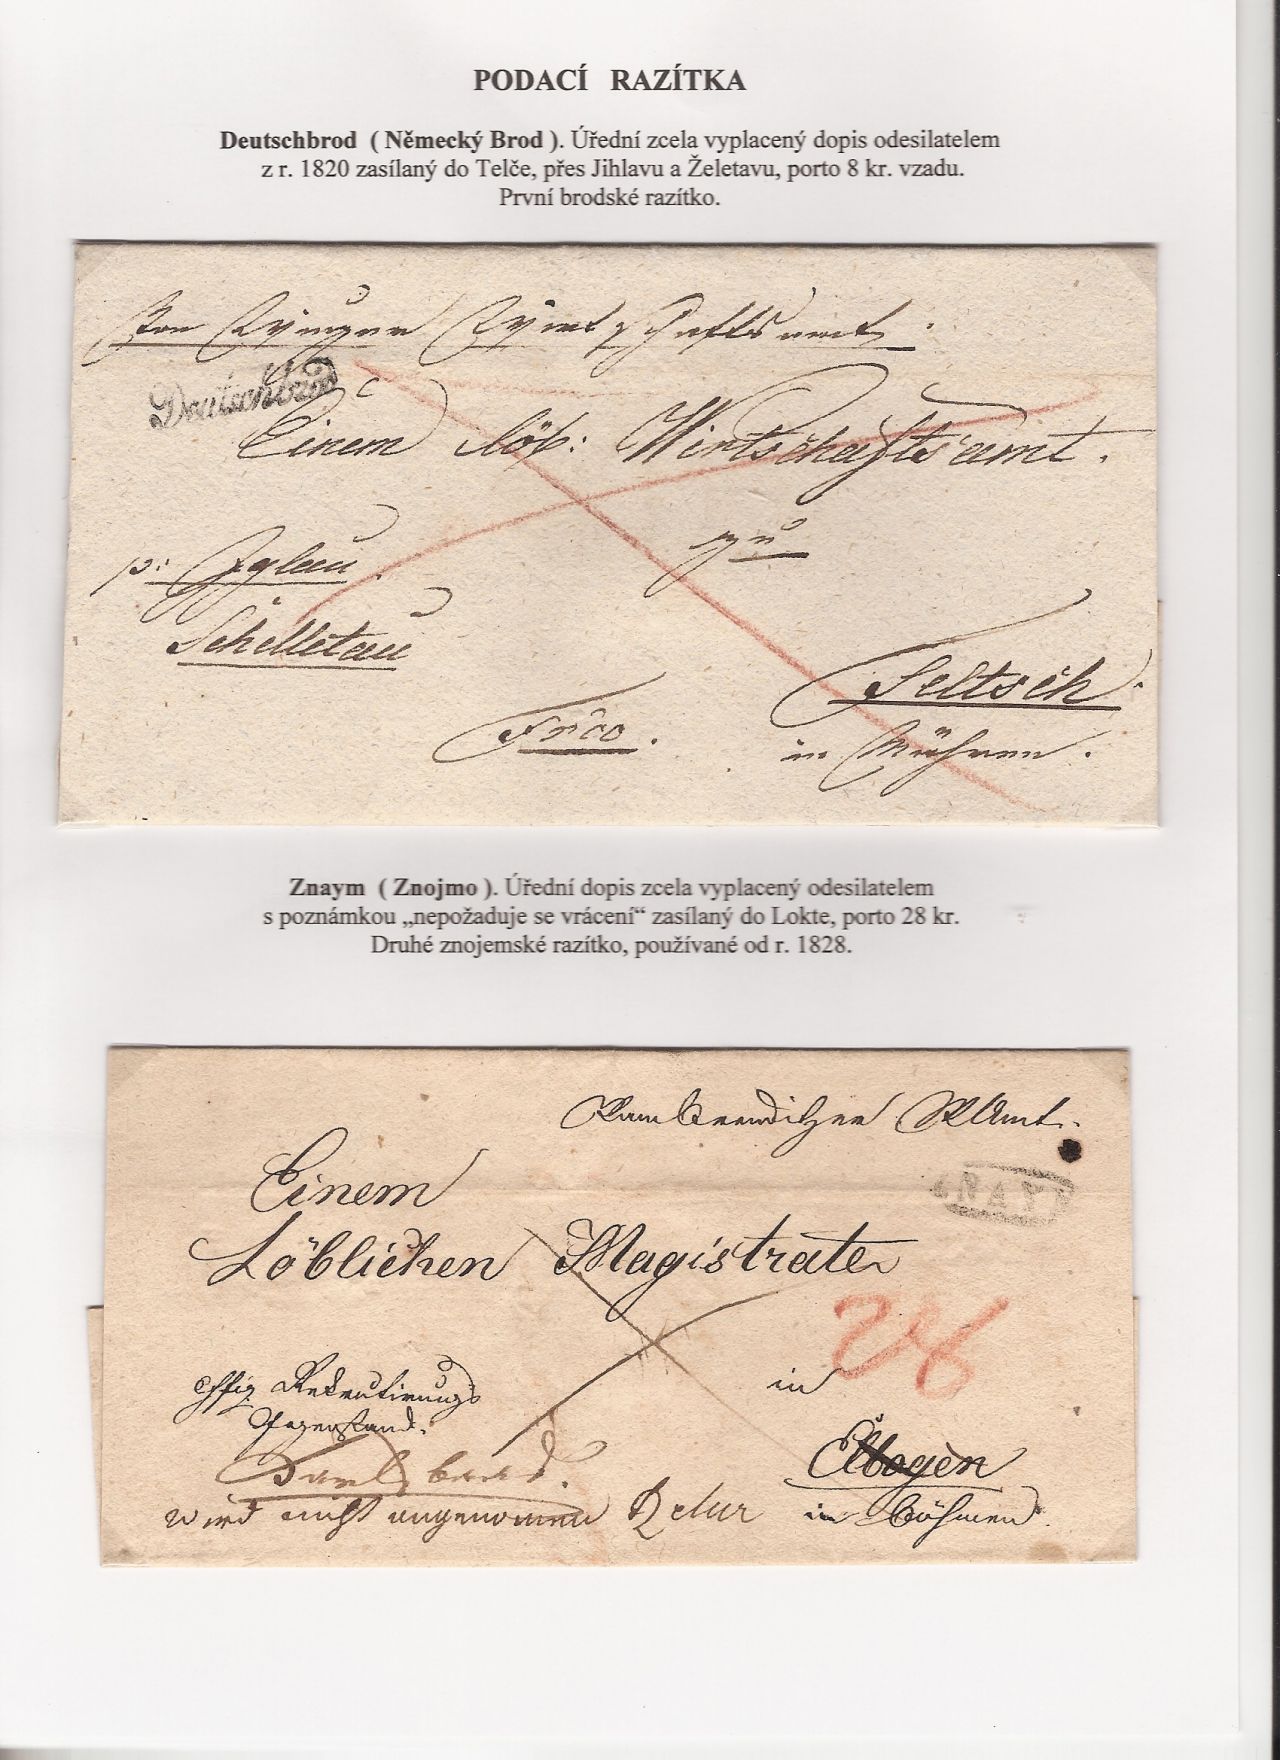 PODACÍ RAZÍTKA
Deutschbrod ( Německý Brod ). Úřední zcela vyplacený dopis odesilatelem
z r. 1820 zasílaný do Telče, přes Jihlavu a Želetavu, porto 8 kr. vzadu.
První brodské razítko.
Von Wirtschaftsamt.
Deutschbrod
Einem löb: Wirtschaftsamt.
zu
p: Iglau
Schelletau
Teltsch
Frco.
in Mähren.
Znaym ( Znojmo ). Úřední dopis zcela vyplacený odesilatelem
s poznámkou „nepožaduje se vrácení“ zasílaný do Lokte, porto 28 kr.
Druhé znojemské razítko, používané od r. 1828.
Einem
Löblichen Magistrate
28
Rekrutirungs
in
Gegenstand.
Elbogen
wird nicht angenommen Retur in Böhmen